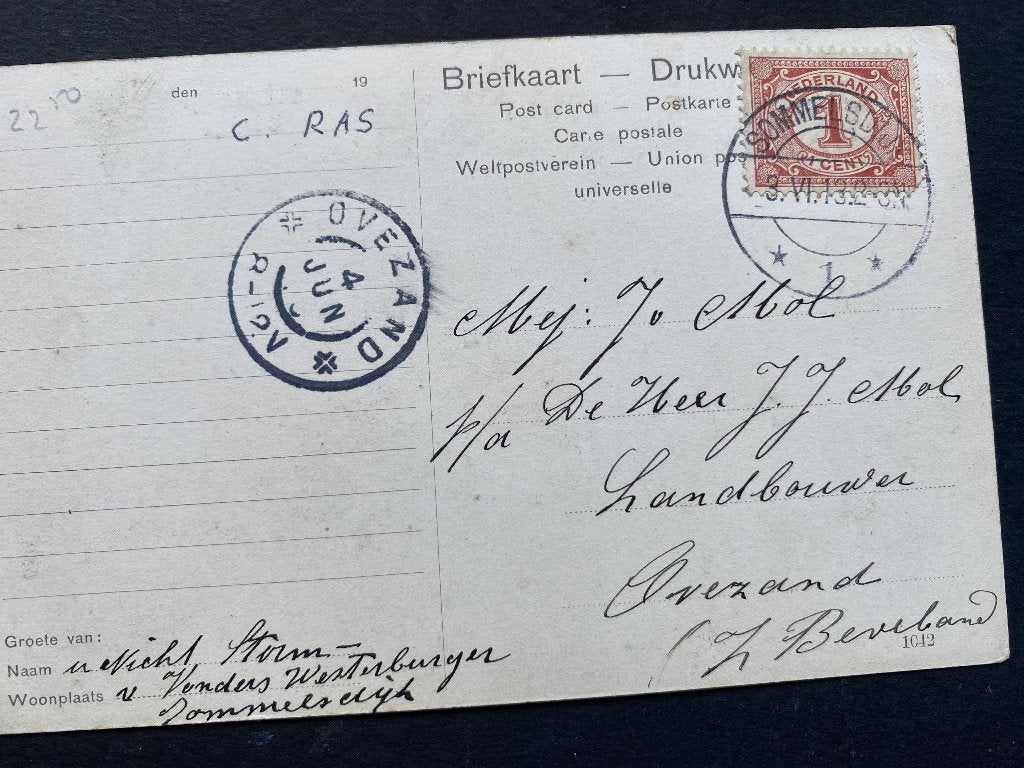 22 50
den 19
C. RAS
Briefkaart — Drukw
Post card — Postkarte
Carte postale
Weltpostverein — Union pos
universelle
NEDERLAND
1
1 CENT
SOMMELSD
3.VI.13.2-3N.
1
OVEZAND
4
JUN
8-12V
Mej: Jo Mol
p/a De Heer J. J. Mol
Landbouwer
Ovezand
(Z Beveland)
1042
Groete van:
Naam u Nicht, Storm—
Woonplaats v Vonders Westerburger
Sommelsdijk